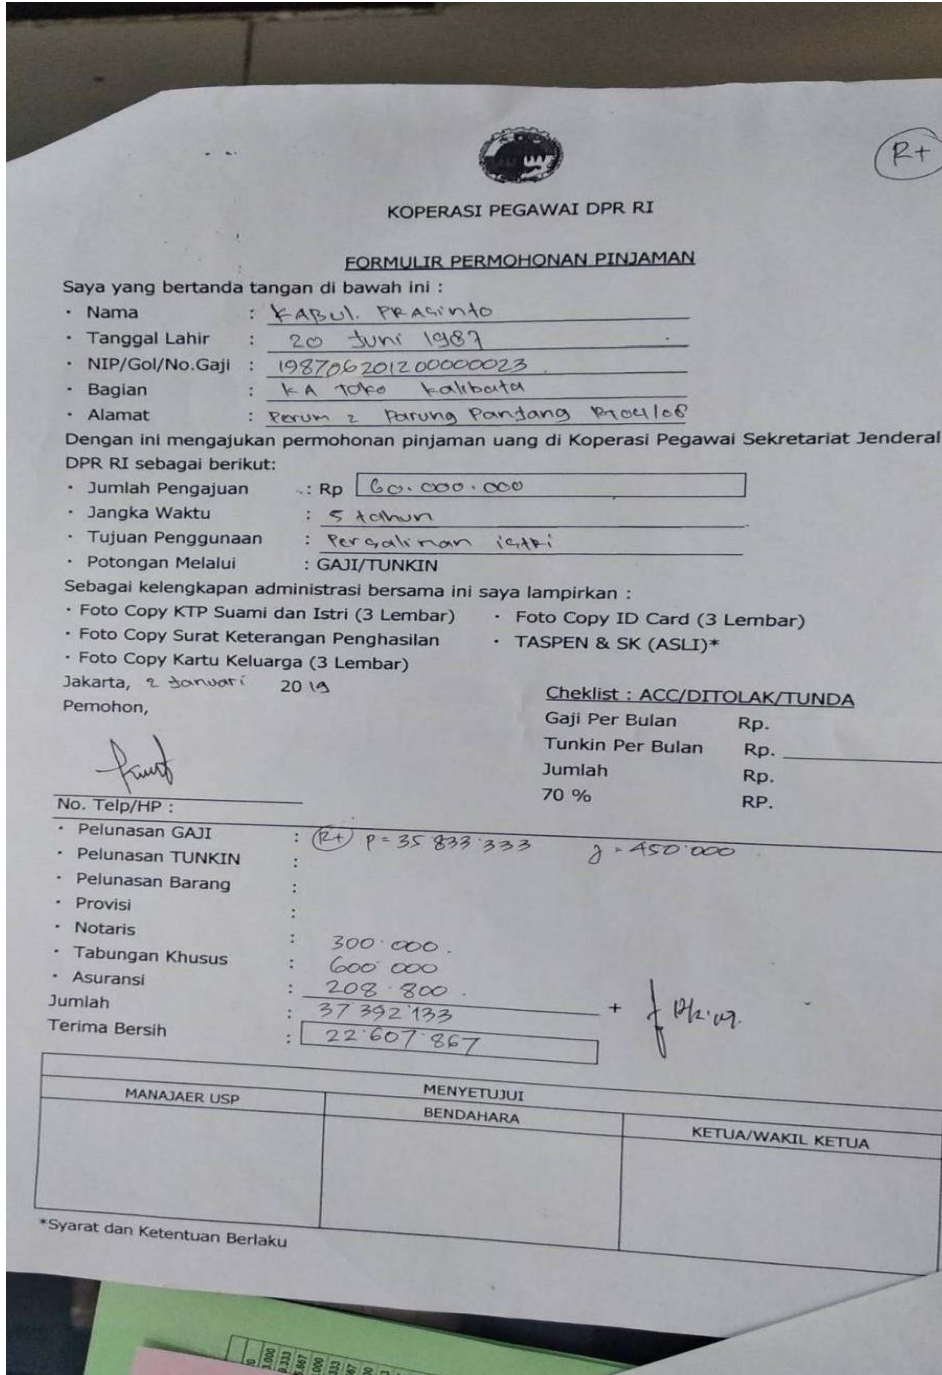 R+
KOPERASI PEGAWAI DPR RI
FORMULIR PERMOHONAN PINJAMAN
Saya yang bertanda tangan di bawah ini :
· Nama : KABUL. PRASINTO
· Tanggal Lahir : 20 Juni 1987
· NIP/Gol/No.Gaji : 198706201200000023
· Bagian : KA TOKO Kalibata
· Alamat : Perum 2 Parung Panjang Rt04/08
Dengan ini mengajukan permohonan pinjaman uang di Koperasi Pegawai Sekretariat Jenderal
DPR RI sebagai berikut:
· Jumlah Pengajuan : Rp 60.000.000
· Jangka Waktu : 5 tahun
· Tujuan Penggunaan : Persalinan istri
· Potongan Melalui : GAJI/TUNKIN
Sebagai kelengkapan administrasi bersama ini saya lampirkan :
· Foto Copy KTP Suami dan Istri (3 Lembar) · Foto Copy ID Card (3 Lembar)
· Foto Copy Surat Keterangan Penghasilan · TASPEN & SK (ASLI)*
· Foto Copy Kartu Keluarga (3 Lembar)
Jakarta, 2 Januari 2019
Pemohon,
Cheklist : ACC/DITOLAK/TUNDA
Gaji Per Bulan Rp.
Tunkin Per Bulan Rp.
Jumlah Rp.
70 % RP.
No. Telp/HP :
· Pelunasan GAJI : R+ P = 35 833 333 J = 450.000
· Pelunasan TUNKIN :
· Pelunasan Barang :
· Provisi :
· Notaris : 300.000.
· Tabungan Khusus : 600 000
· Asuransi : 208.800.
Jumlah : 37 392 133 +
Terima Bersih : 22.607.867
MENYETUJUI
MANAJAER USP BENDAHARA KETUA/WAKIL KETUA
*Syarat dan Ketentuan Berlaku